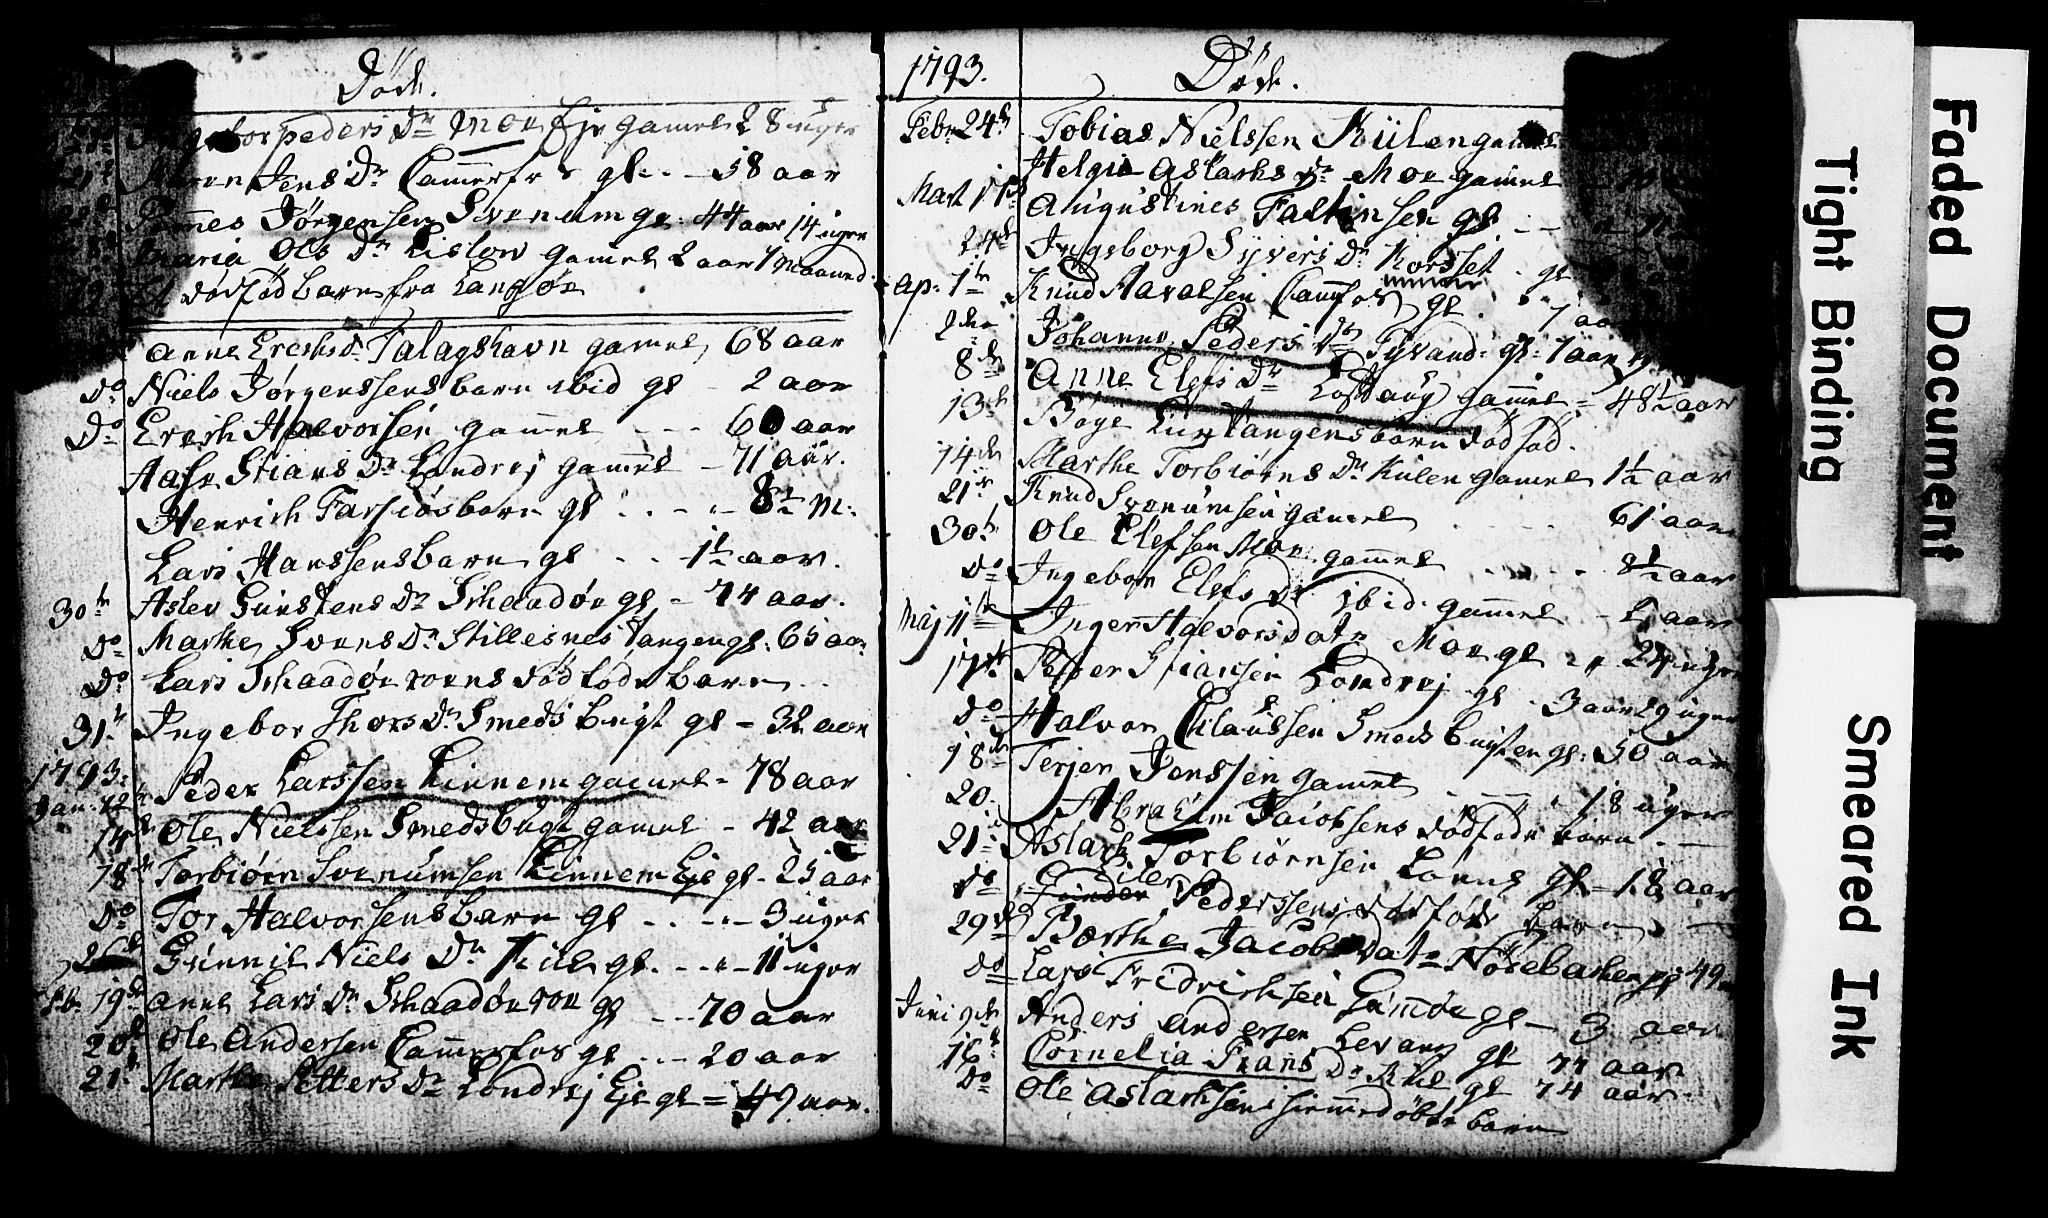 Døde.
Peders Dr Moe Eje gamel 28 uger
Jens Dr Cammerfos gl. 58 aar
Jørgensen Svenum gl. 44 aar 14 uger
Maria Ols Dr Lislow gamel 2 aar 1 Maaned
Et dødfød barn fra Langøe
Anne Erichs Dr Talagshavn gamel 68 aar
Do Niels Jørgenssens barn ibid gl - 2 aar
Do Erich Halvorsen gamel - - - 60 aar
Aase Stians Dr Londrej gamel - 71 aar.
Henrich Farsiøs barn gl . . - - 8½ M:
Lars Hanssens barn gl . . - 1½ aar.
30te Aslev Gunstens Dr Schaadøe gl - 74 aar.
Do Marthe Svens Dr Stillesnes Tangen gl: 65 aar
Do Lars Schaadøe roens dødføde barn - .
31te Ingebor Thors Dr Smedsbugt gl - 32 aar
1793.
Jan. 12te Peder Larssen Linnem gamel - 78 aar
14de Ole Nielssen Smedsbugt gamel - 42 aar
18de Torbiørn Svenumsen Linnem Eje gl - 25 aar
Do Tor Halvorsens barn gl . . - - 3 uger
26de Gunnil Niels Dr Kiil gl. - - - 11 uger
Feb. 19de Anne Lars Dr Schaadøe roe gl - - 70 aar
20de Ole Andersen Cammerfos gl . - - 20 aar
21te Marthe Petters Dr Londrej Eje gl = 49 aar.
1793. Døde.
Febr 24de Tobias Nielssen Külen gamel
Helgie Aslachs Dr Moe gamel
Mart 17de Augustines Faltinsen gl. - -
24de Ingeborg Syvers Dr Korsset - gl
Ap. 1te Knud Havalsen Camfos gl . . 7 aar
2den Johanne Peders Dr Tyvand: gl: 1 aar
8de Anne Elefs Dr Lofthaug gamel = 48½ aar
13de Børge Lurtangens barn dødfød.
14de Marthe Torbiørns Dr Külen gamel 1½ aar
21te Knud Svenumsen gamel - - - 61 aar
30te Ole Elefsen Moe gamel . . . . . 8½ aar
Do Ingebor Elefs Dr ibid. gamel - 5 aar
Maj 11te Inger Halvorsdatr Moe gl - - 24 uger
17de Petter Stiansen Londrej gl - 3 aar 29 uger
Do Halvor Chlaussen Smedsbugten gl: 50 aar
18de Terjer Jenssen gamel - - - - 18 uger
20. Abraham Jacobsens dødføde barn . -
21te Aslach Torbiørnsen Lønne gl = 18 aar
Do Eiler Pederssens dødføde barn . -
29de Børthe Jacobsdatr Nøsebachen gl 49
Do Lars Fridrichsen Gumøe gl - 3 aar
Juni 9de Anders Andersen Levang gl 77 aar
16de Cornelia Frans Dr Kiil gl 74 aar
Do Ole Aslachsens hiemmedøbte barn
Faded Document
Tight Binding
Smeared Ink